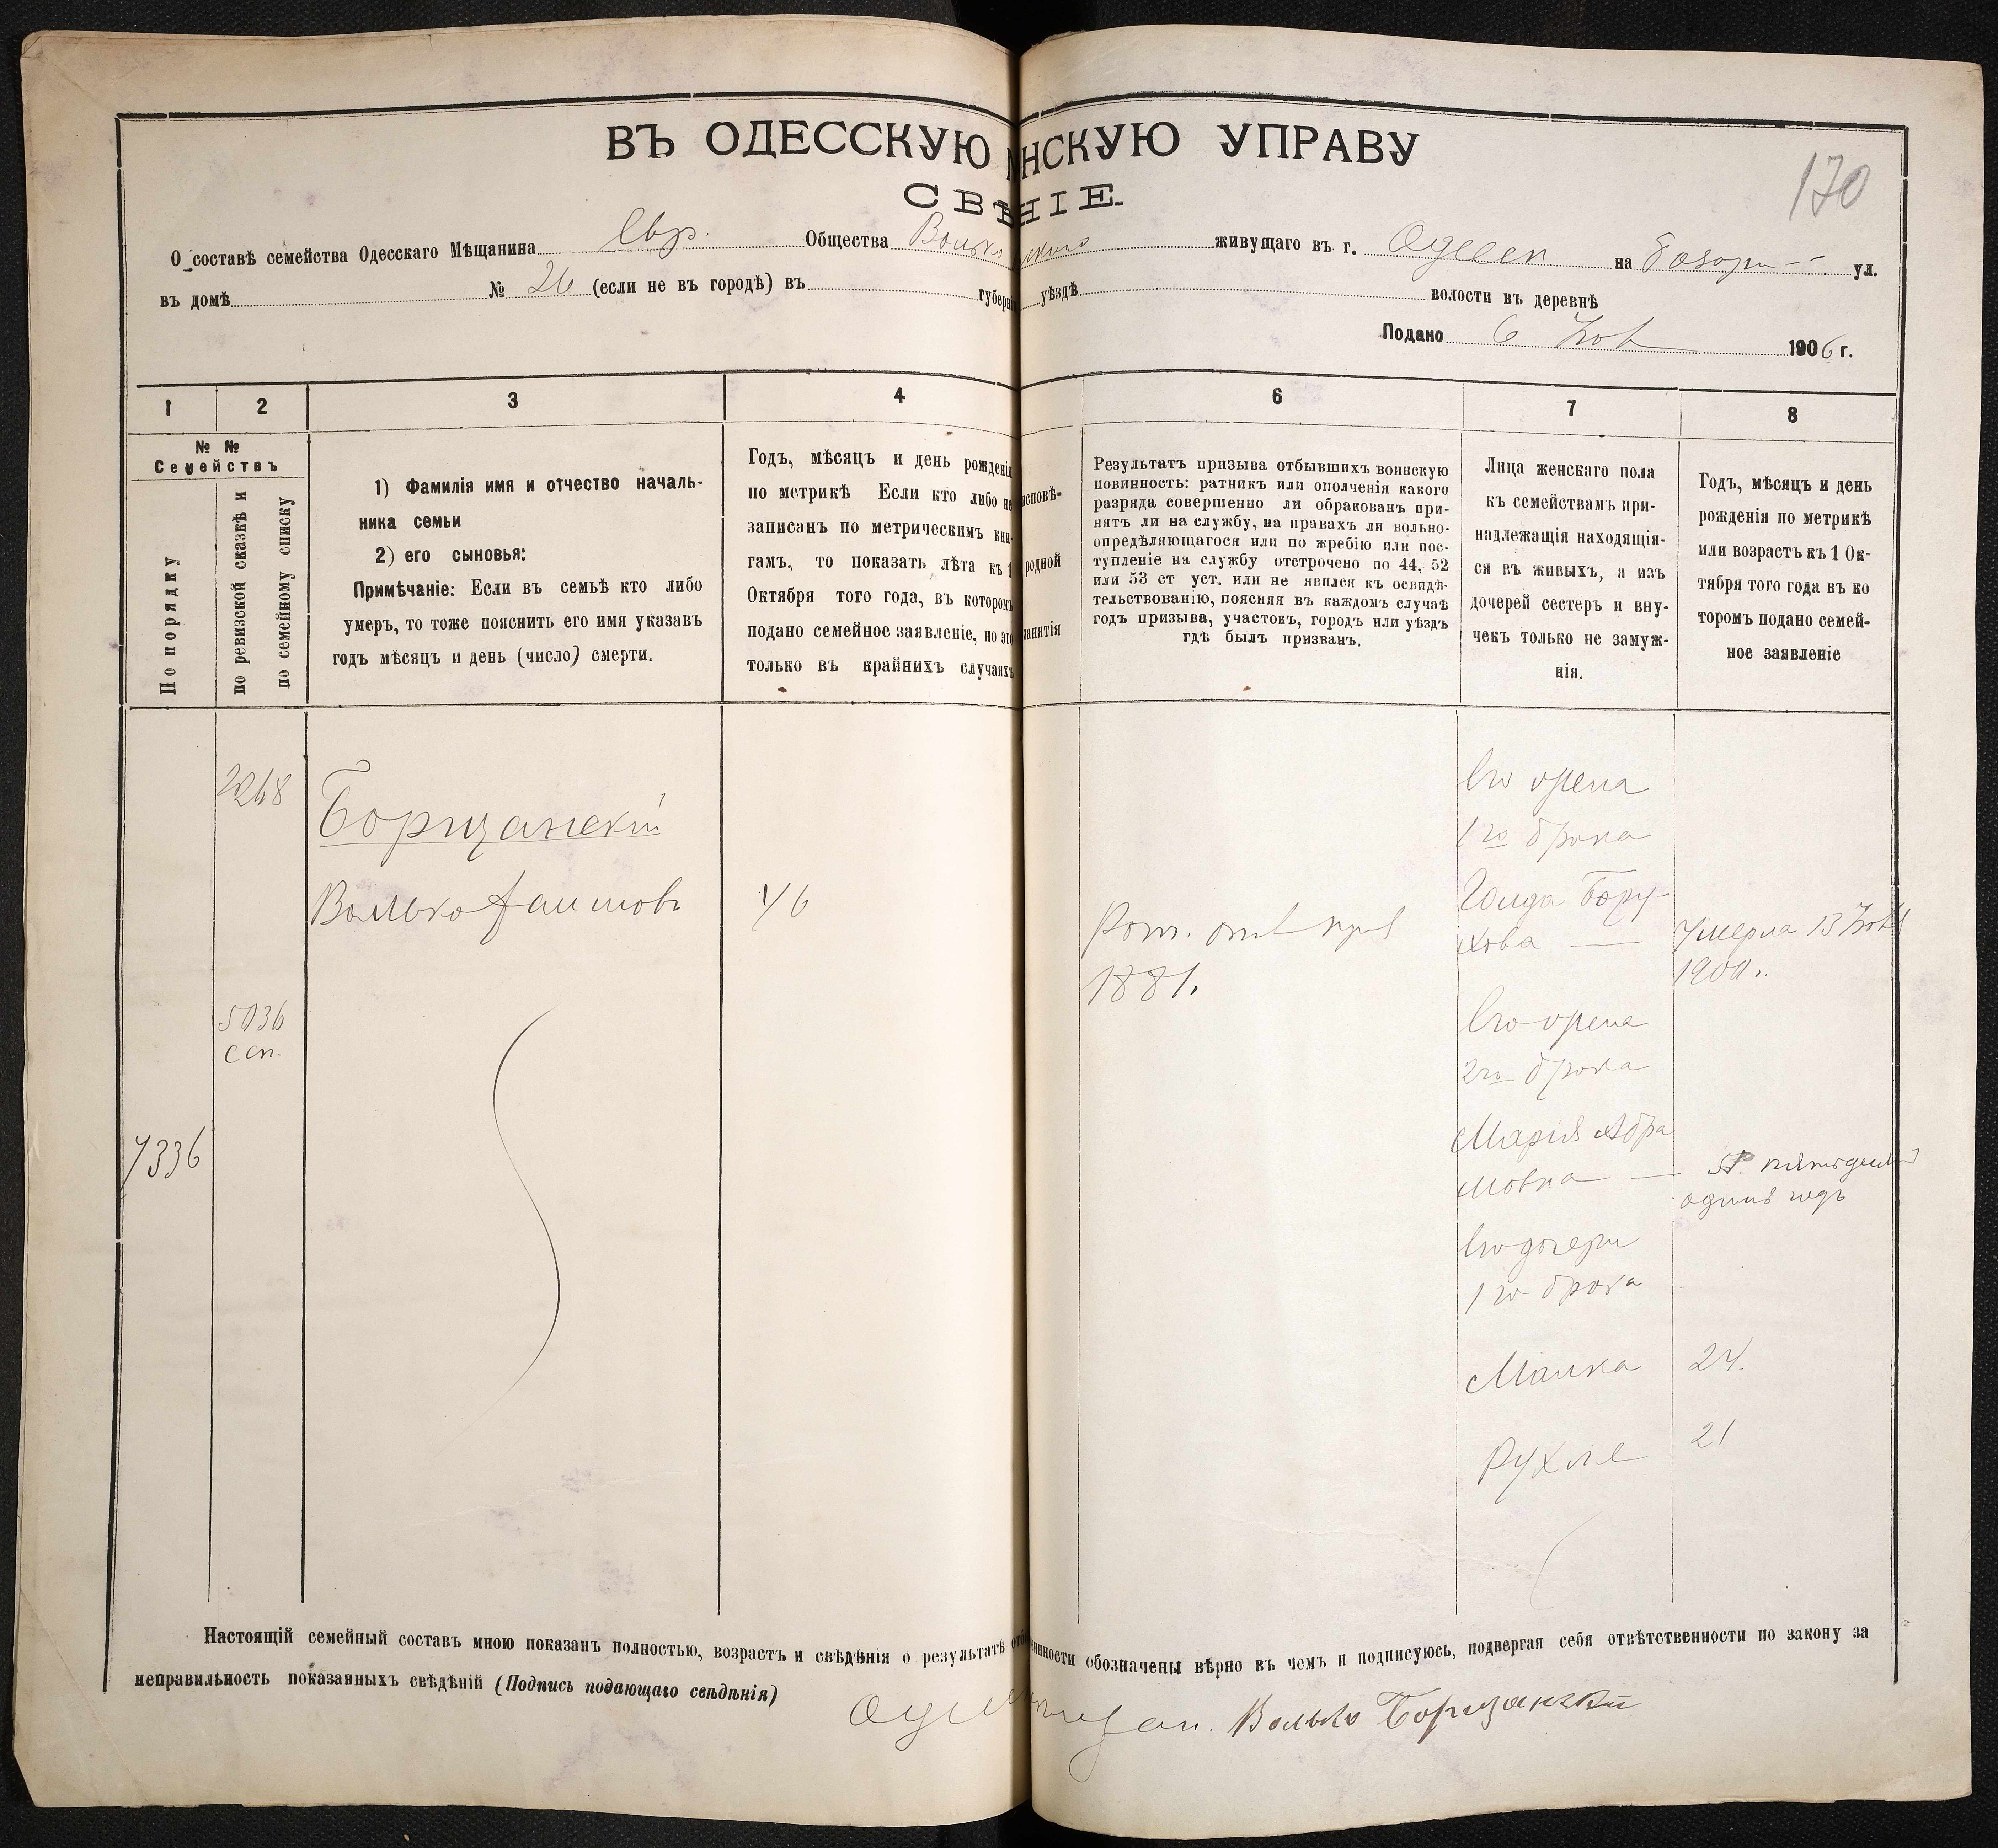 ВЪ ОДЕССКУЮ НСКУЮ УПРАВУ
СВѢНІЕ.
170
О составѣ семейства Одесскаго Мѣщанина Евр. Общества Волько живущаго въ г. Одессѣ на Базарн ул.
въ домѣ № 26 (если не въ городѣ) въ губерн уѣздѣ волости въ деревнѣ
Подано 6 Ноя 1906 г.
1 2 3 4 6 7 8
№ №
Семействъ
По порядку
по ревизской сказкѣ и
по семейному списку
1) Фамилія имя и отчество началь-
ника семьи
2) его сыновья:
Примѣчаніе: Если въ семьѣ кто либо
умеръ, то тоже пояснить его имя указавъ
годъ мѣсяцъ и день (число) смерти.
Годъ, мѣсяцъ и день рожденія
по метрикѣ Если кто либо не
записанъ по метрическимъ кни-
гамъ, то показать лѣта къ 1
Октября того года, въ которомъ
подано семейное заявленіе, но это
только въ крайнихъ случаяхъ
исповѣ-
родной
занятія
Результатъ призыва отбывшихъ воинскую
повинность: ратникъ или ополченія какого
разряда совершенно ли обракованъ при-
нятъ ли на службу, на правахъ ли вольно-
опредѣляющагося или по жребію или пос-
тупленіе на службу отстрочено по 44, 52
или 53 ст уст. или не явился къ освидѣ-
тельствованію, поясняя въ каждомъ случаѣ
годъ призыва, участокъ, городъ или уѣздъ
гдѣ былъ призванъ.
Лица женскаго пола
къ семействамъ при-
надлежащія находящія-
ся въ живыхъ, а изъ
дочерей сестеръ и вну-
чекъ только не замуж-
нія.
Годъ, мѣсяцъ и день
рожденія по метрикѣ
или возрастъ къ 1 Ок-
тября того года въ ко
торомъ подано семей-
ное заявленіе
2268
Борщанскій
Волько Хаимовъ
46
5036
ссп.
7336
Рат. опол
1881.
Его жена
1го брака
Голда Бору-
хова
Умерла 13 Ноя
1900.
Его жена
2го брака
Марія Абра
мовна
51. пятьдесят
одинъ годъ
Его дочери
1го брака
Малка 24.
Рухля 21
Настоящій семейный составъ мною показанъ полностью, возрастъ и свѣдѣнія о результатѣ отб инности обозначены вѣрно въ чемъ и подписуюсь, подвергая себя отвѣтственности по закону за
неправильность показанныхъ свѣдѣній (Подпись подающаго свѣдѣнія)
Волько Борщанскій